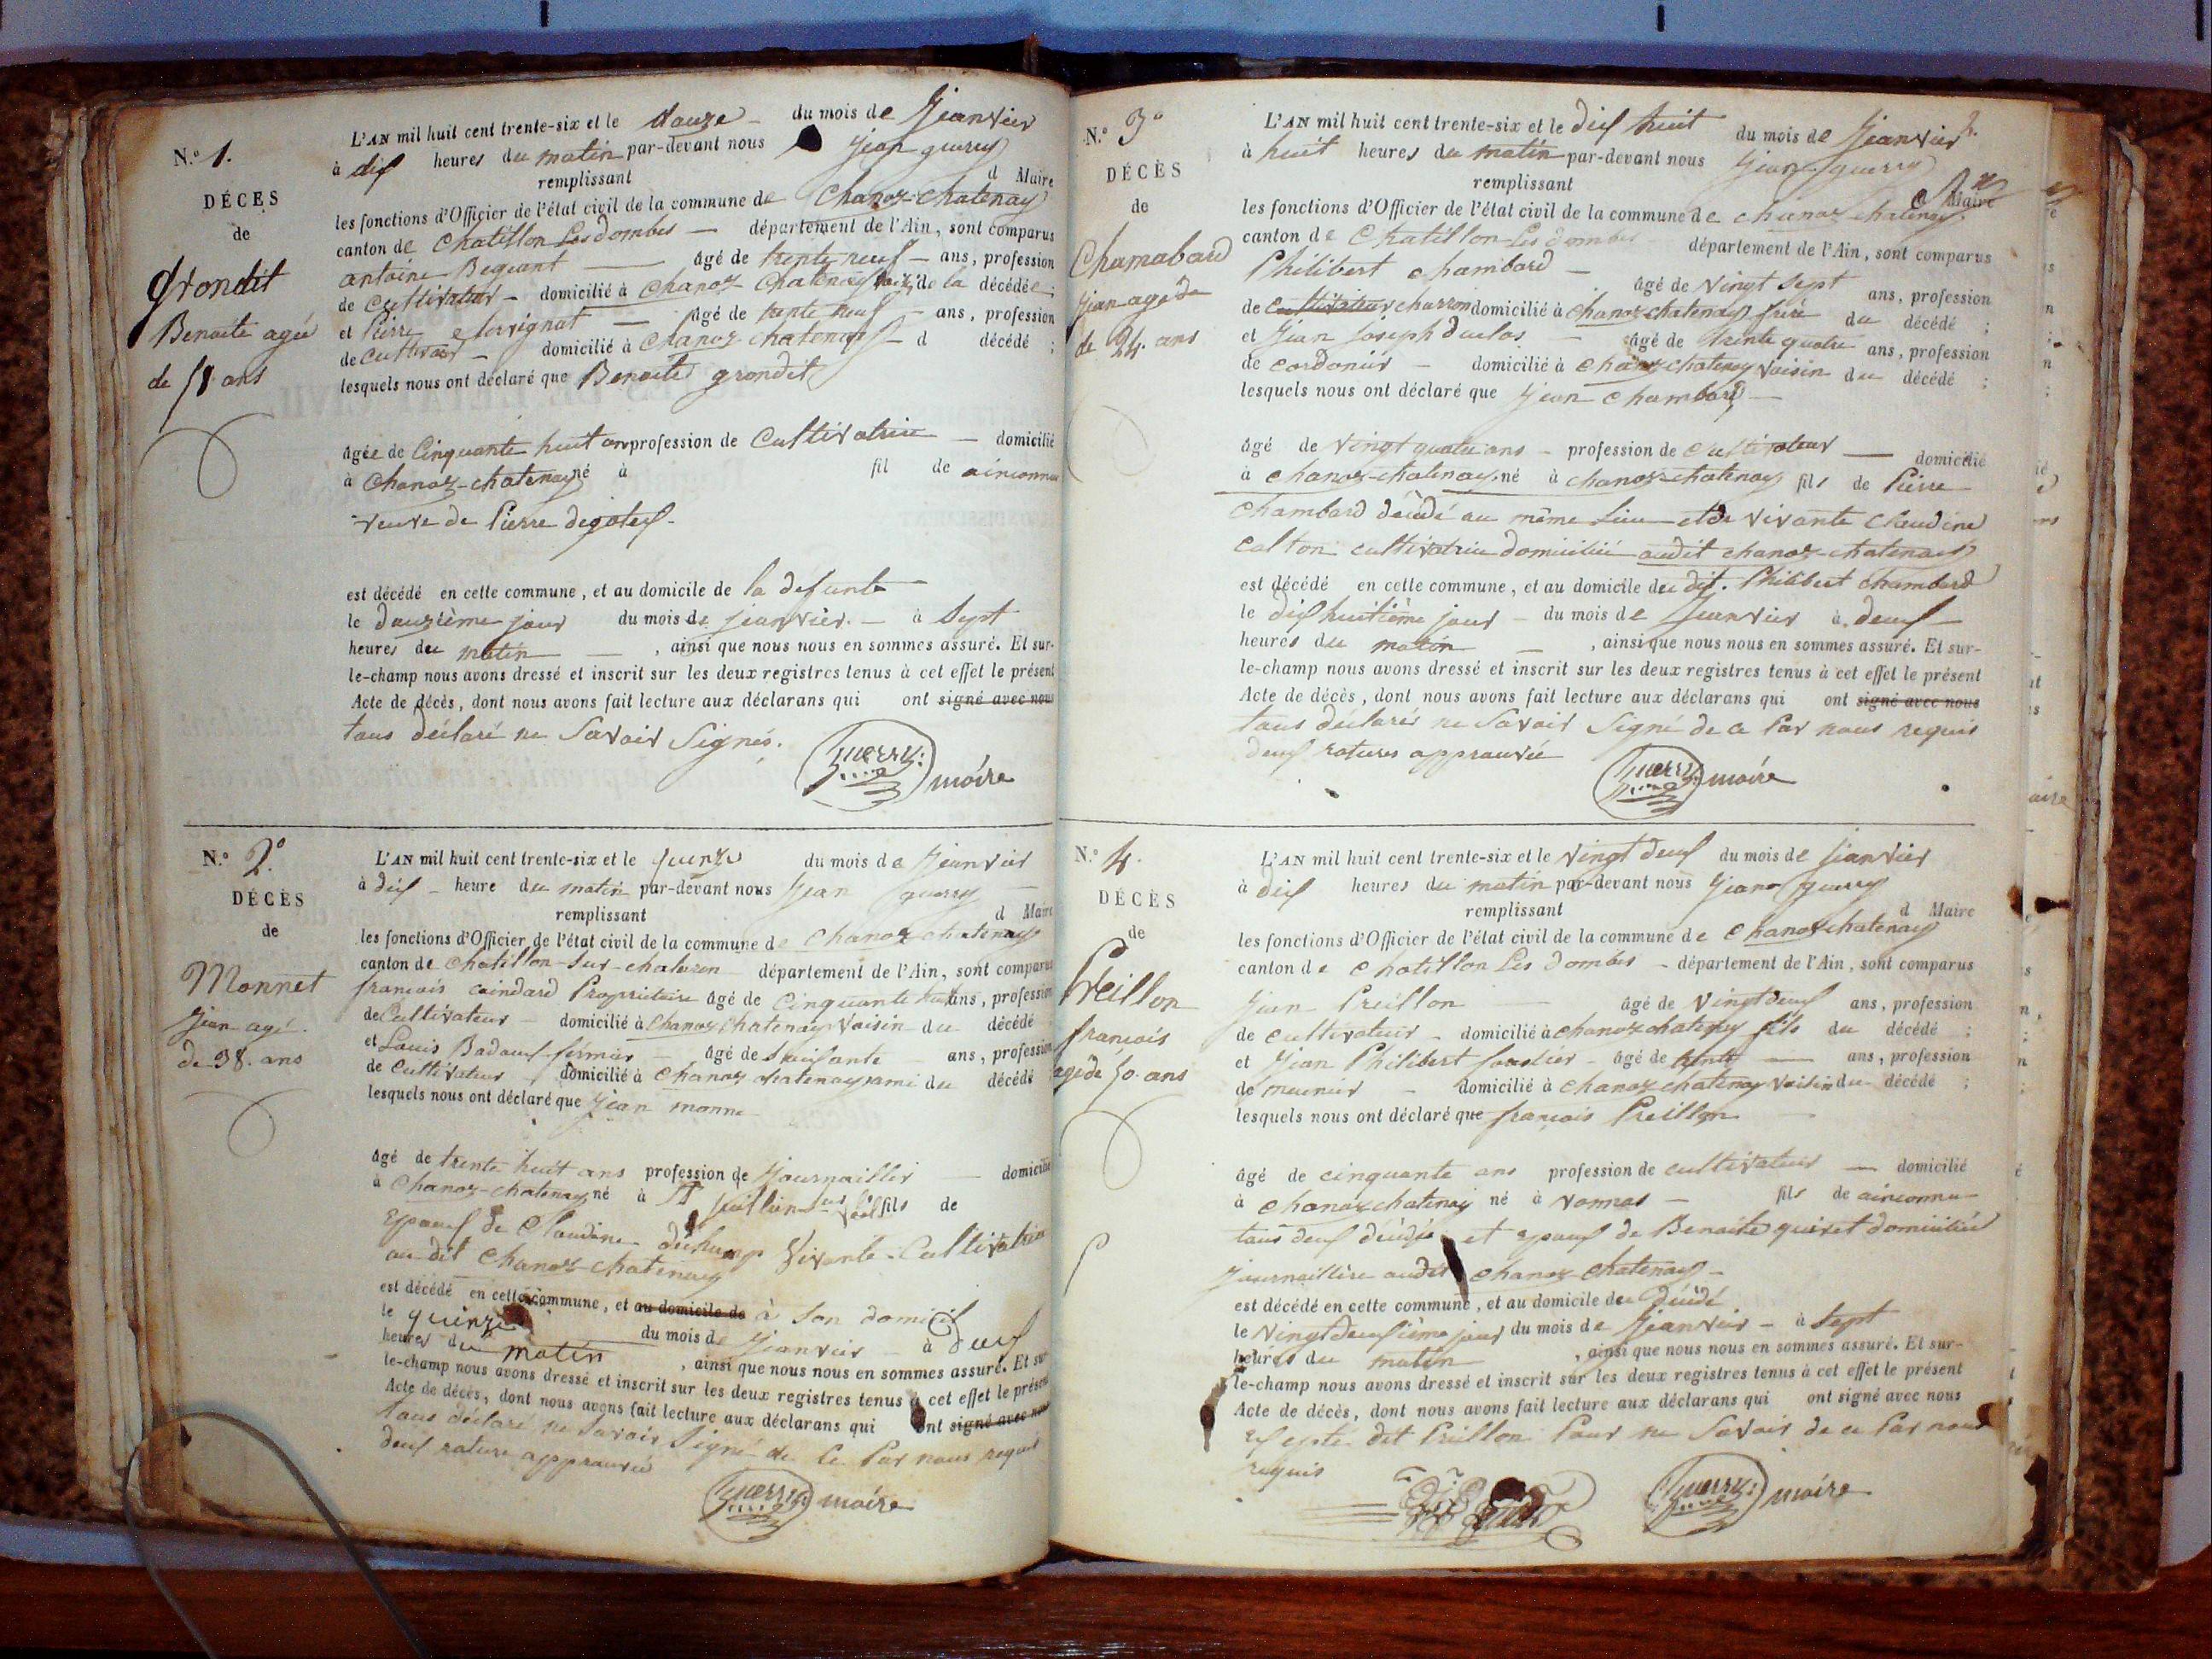 N.º 1.
DÉCÈS
de
grondit
Benoite agée
de 58 ans
L'AN mil huit cent trente-six et le douze du mois de Jeanvier
à dix heures du matin par-devant nous Jean guerry
remplissant d Maire
les fonctions d'Officier de l'état civil de la commune de Chanoz-chatenay
canton de Chatillon Les dombes département de l'Ain, sont comparus
antoine Begeant âgé de trente neuf ans, profession
de Cultivateur domicilié à Chanoz Chatenay de la décédée ;
et Pierre âgé de trente neuf ans, profession
de Cultivateur domicilié à Chanoz-chatenay d décédé ;
lesquels nous ont déclaré que Benoite grondit
âgée de Cinquante huit ans profession de Cultivatrice domicilié
à Chanoz-chatenay né à fil de ainconnu
veuve de Pierre
est décédé en cette commune, et au domicile de la defunte
le douzième jour du mois de jeanvier à Sept
heures du matin , ainsi que nous nous en sommes assuré. Et sur-
le-champ nous avons dressé et inscrit sur les deux registres tenus à cet effet le présent
Acte de décès, dont nous avons fait lecture aux déclarans qui ont signé avec nous
tous déclaré ne Savoir Signés.
guerry maire
N.º 2º
DÉCÈS
de
Monnet
Jean agé
de 38. ans
L'AN mil huit cent trente-six et le quinze du mois de Jeanvier
à dix heure du matin par-devant nous Jean guerry
remplissant d Maire
les fonctions d'Officier de l'état civil de la commune de Chanoz chatenay
canton de Chatillon-sur-chalaronn département de l'Ain, sont comparus
francois caindard Propriétaire âgé de Cinquante huit ans, profession
de Cultivateur domicilié à Chanoz Chatenay voisin du décédé
et Louis Badoux fermier âgé de Soixante ans, profession
de Cultivateur domicilié à Chanoz chatenay ami du décédé
lesquels nous ont déclaré que Jean monne
âgé de trente huit ans profession de Journaillier domicilié
à Chanoz-chatenay né à St fils de
Epoux de Claudine vivante Cultivatrice
au dit Chanoz-chatenay
est décédé en cette commune, et au domicile de à Son domicil
le quinze du mois de Jeanvier à deux
heures du matin , ainsi que nous nous en sommes assuré. Et sur
le-champ nous avons dressé et inscrit sur les deux registres tenus à cet effet le présent
Acte de décès, dont nous avons fait lecture aux déclarans qui ont signé avec nous
tous déclaré ne Savoir Signé de ce Par nous requis
deux rature approuvée
guerry maire
N.º 3º
DÉCÈS
de
Chamabard
Jean agé de
de 24. ans
L'AN mil huit cent trente-six et le dix huit du mois de Jeanvier
à huit heures du matin par-devant nous Jean guerry
remplissant Maire
les fonctions d'Officier de l'état civil de la commune de chanoz chatenay
canton de Chatillon-Les dombes département de l'Ain, sont comparus
Philibert chambard âgé de vingt sept ans, profession
de cultivateur charron domicilié à chanoz chatenay frère du décédé ;
et Jean Joseph duclos âgé de trente quatre ans, profession
de cordonier domicilié à chanoz chatenay voisin du décédé ;
lesquels nous ont déclaré que Jean chambard
âgé de vingt quatre ans profession de cultivateur domicilié
à chanoz-chatenay né à chanoz-chatenay fils de Pierre
chambard décédé au même Lieu et de vivante claudine
calton cultivatrice domiciliée audit chanoz-chatenay
est décédé en cette commune, et au domicile du dit. Philibert chambard
le dix huitième jour du mois de Jeanvier à deux
heures du matin , ainsi que nous nous en sommes assuré. Et sur-
le-champ nous avons dressé et inscrit sur les deux registres tenus à cet effet le présent
Acte de décès, dont nous avons fait lecture aux déclarans qui ont signé avec nous
tous déclarés ne Savoir Signé de ce Par nous requis
deux ratures approuvée
guerry maire
N.º 4.
DÉCÈS
de
Preillon
francois
agé de 50. ans
L'AN mil huit cent trente-six et le vingt deux du mois de jeanvier
à dix heures du matin par-devant nous Jean guerry
remplissant d Maire
les fonctions d'Officier de l'état civil de la commune de chanoz chatenay
canton de chatillon Les dombes département de l'Ain, sont comparus
Jean Preillon âgé de vingt deux ans, profession
de cultivateur domicilié à chanoz chatenay fils du décédé ;
et Jean Philibert âgé de trente ans, profession
de meunier domicilié à chanoz chatenay voisin du décédé ;
lesquels nous ont déclaré que francois Preillon
âgé de cinquante ans profession de cultivateur domicilié
à chanoz chatenay né à vonnas fils de ainconnu
tous deux décédés et epoux de Benoite quivet domiciliée
journaillière audit chanoz-chatenay
est décédé en cette commune, et au domicile du décédé
le vingt deuxième jour du mois de Jeanvier à sept
heures du matin , ainsi que nous nous en sommes assuré. Et sur-
le-champ nous avons dressé et inscrit sur les deux registres tenus à cet effet le présent
Acte de décès, dont nous avons fait lecture aux déclarans qui ont signé avec nous
Exepté dit Preillon Pour ne Savoir de ce Par nous
requis
guerry maire